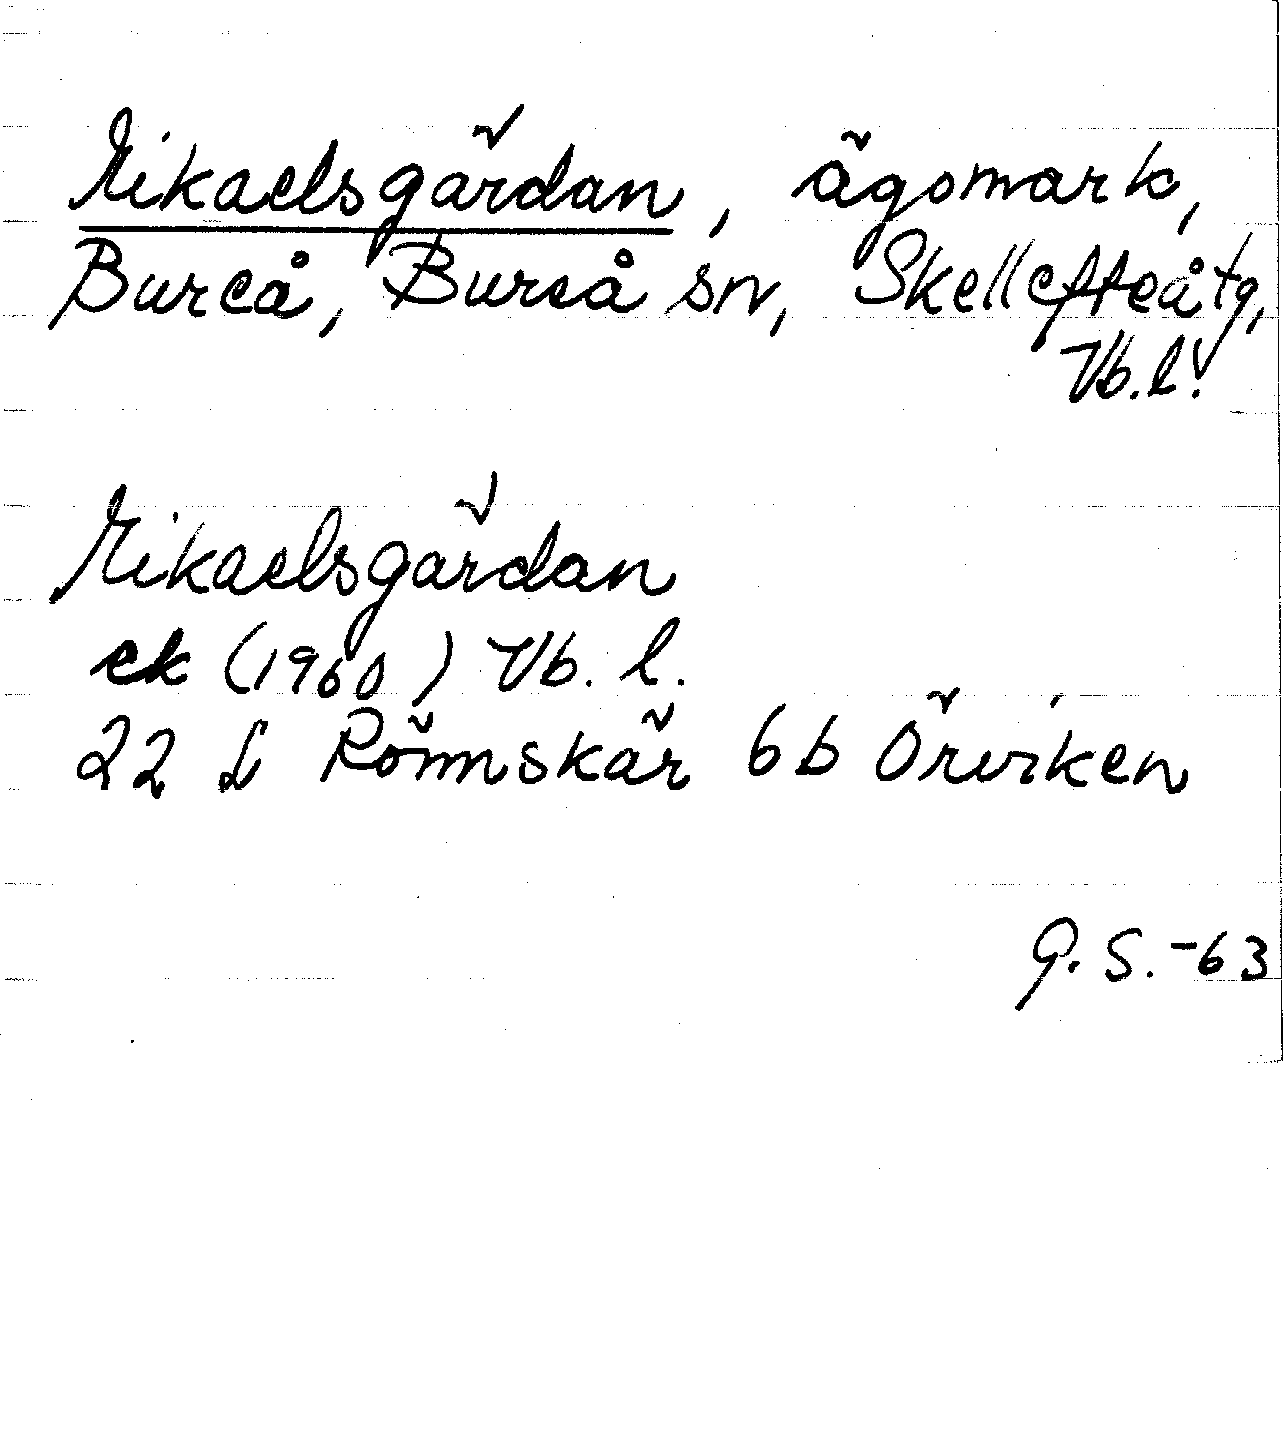 Mikaelsgärdan, ägomark,
Bureå, Bureå sn, Skellefteå tg,
Vb.l.
Mikaelsgärdan
ek (1960) Vb. l.
22 L Rönnskär 6b Örviken
G. S. -63